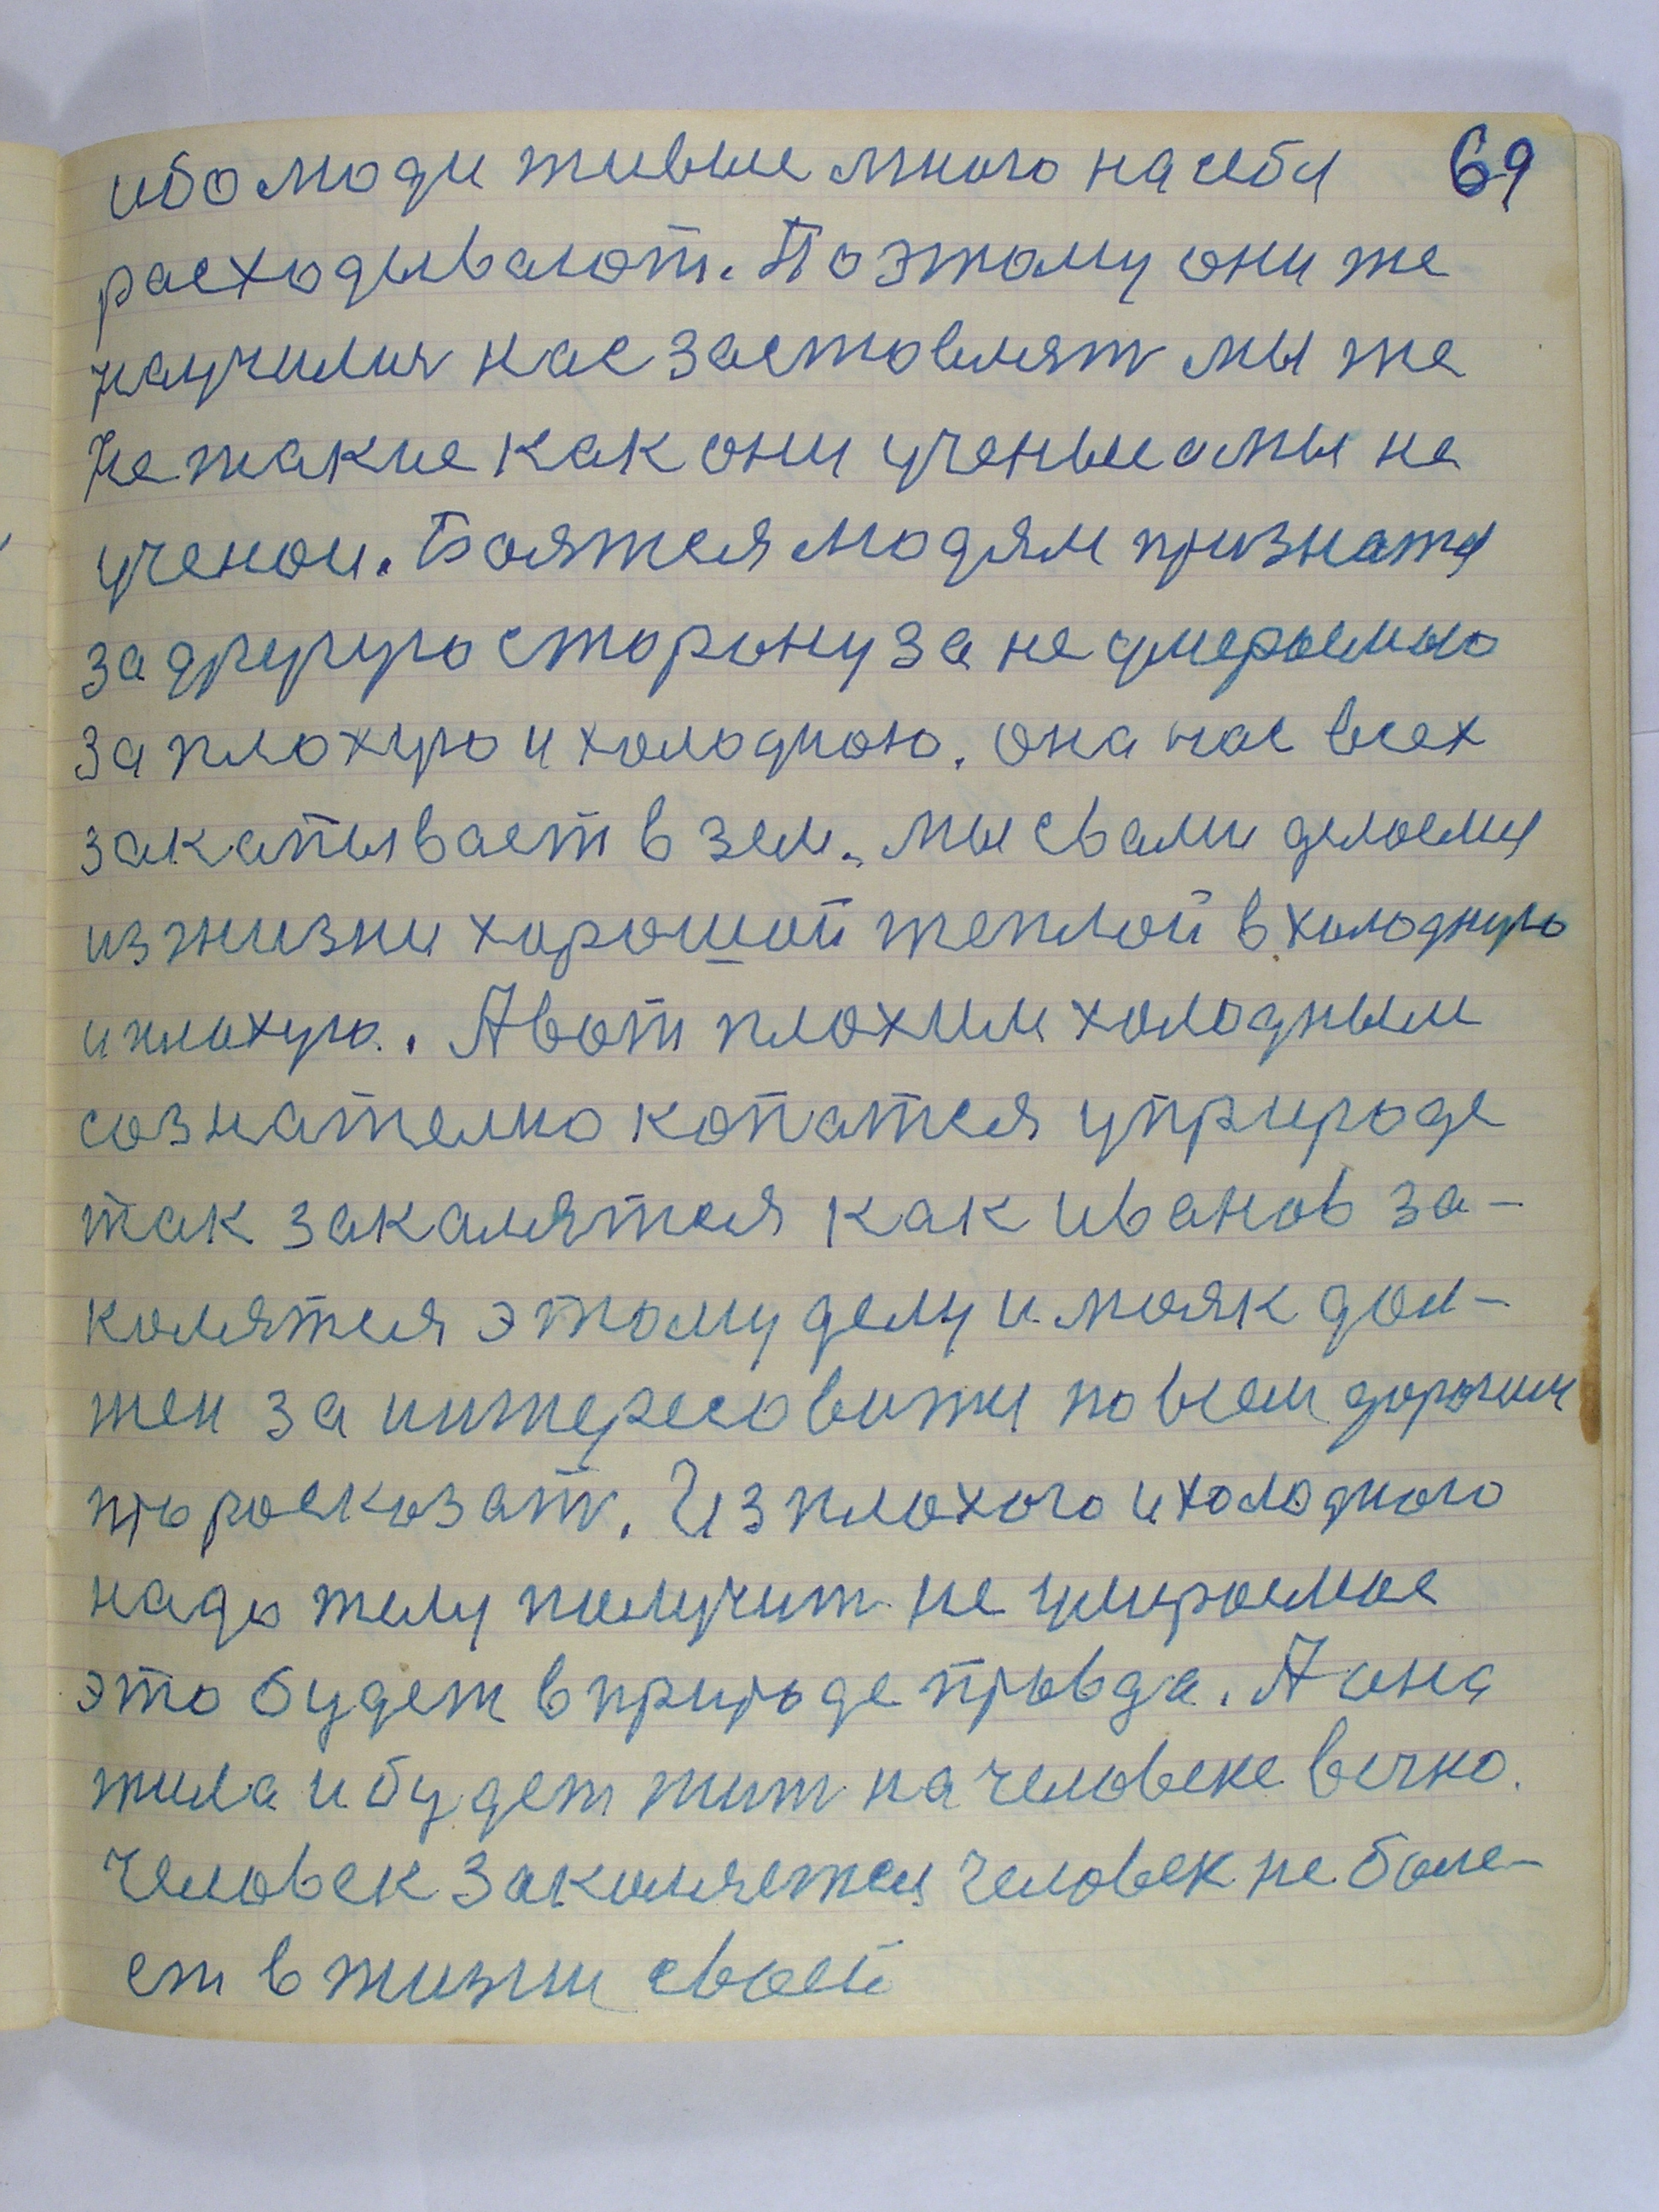 ибо люди живые много на себя 69
расходывают. Поэтому они же
научилис нас заставлят мы же
не такие как они ученые а мы не
ученои. Боятся людям признатя
за другую сторону за не умераемаю
за плохую и холодною. она нас всех
закапывает в зем. мы с вами делаемя
из жизни хорошой теплой в холодную
и плохую. А вот плохим холодным
сознателно копатся у природе
так закалятся как иванов за-
колятся этому делу и маяк дол-
жен за интересовитя по всем дорогим
про росказат. Из плохого и холодного
надо телу получит не умираемое
это будет в природе провда. А она
жила и будет жит на человеке вечно.
Человек закаляется человек не боле-
ет в жизни своей